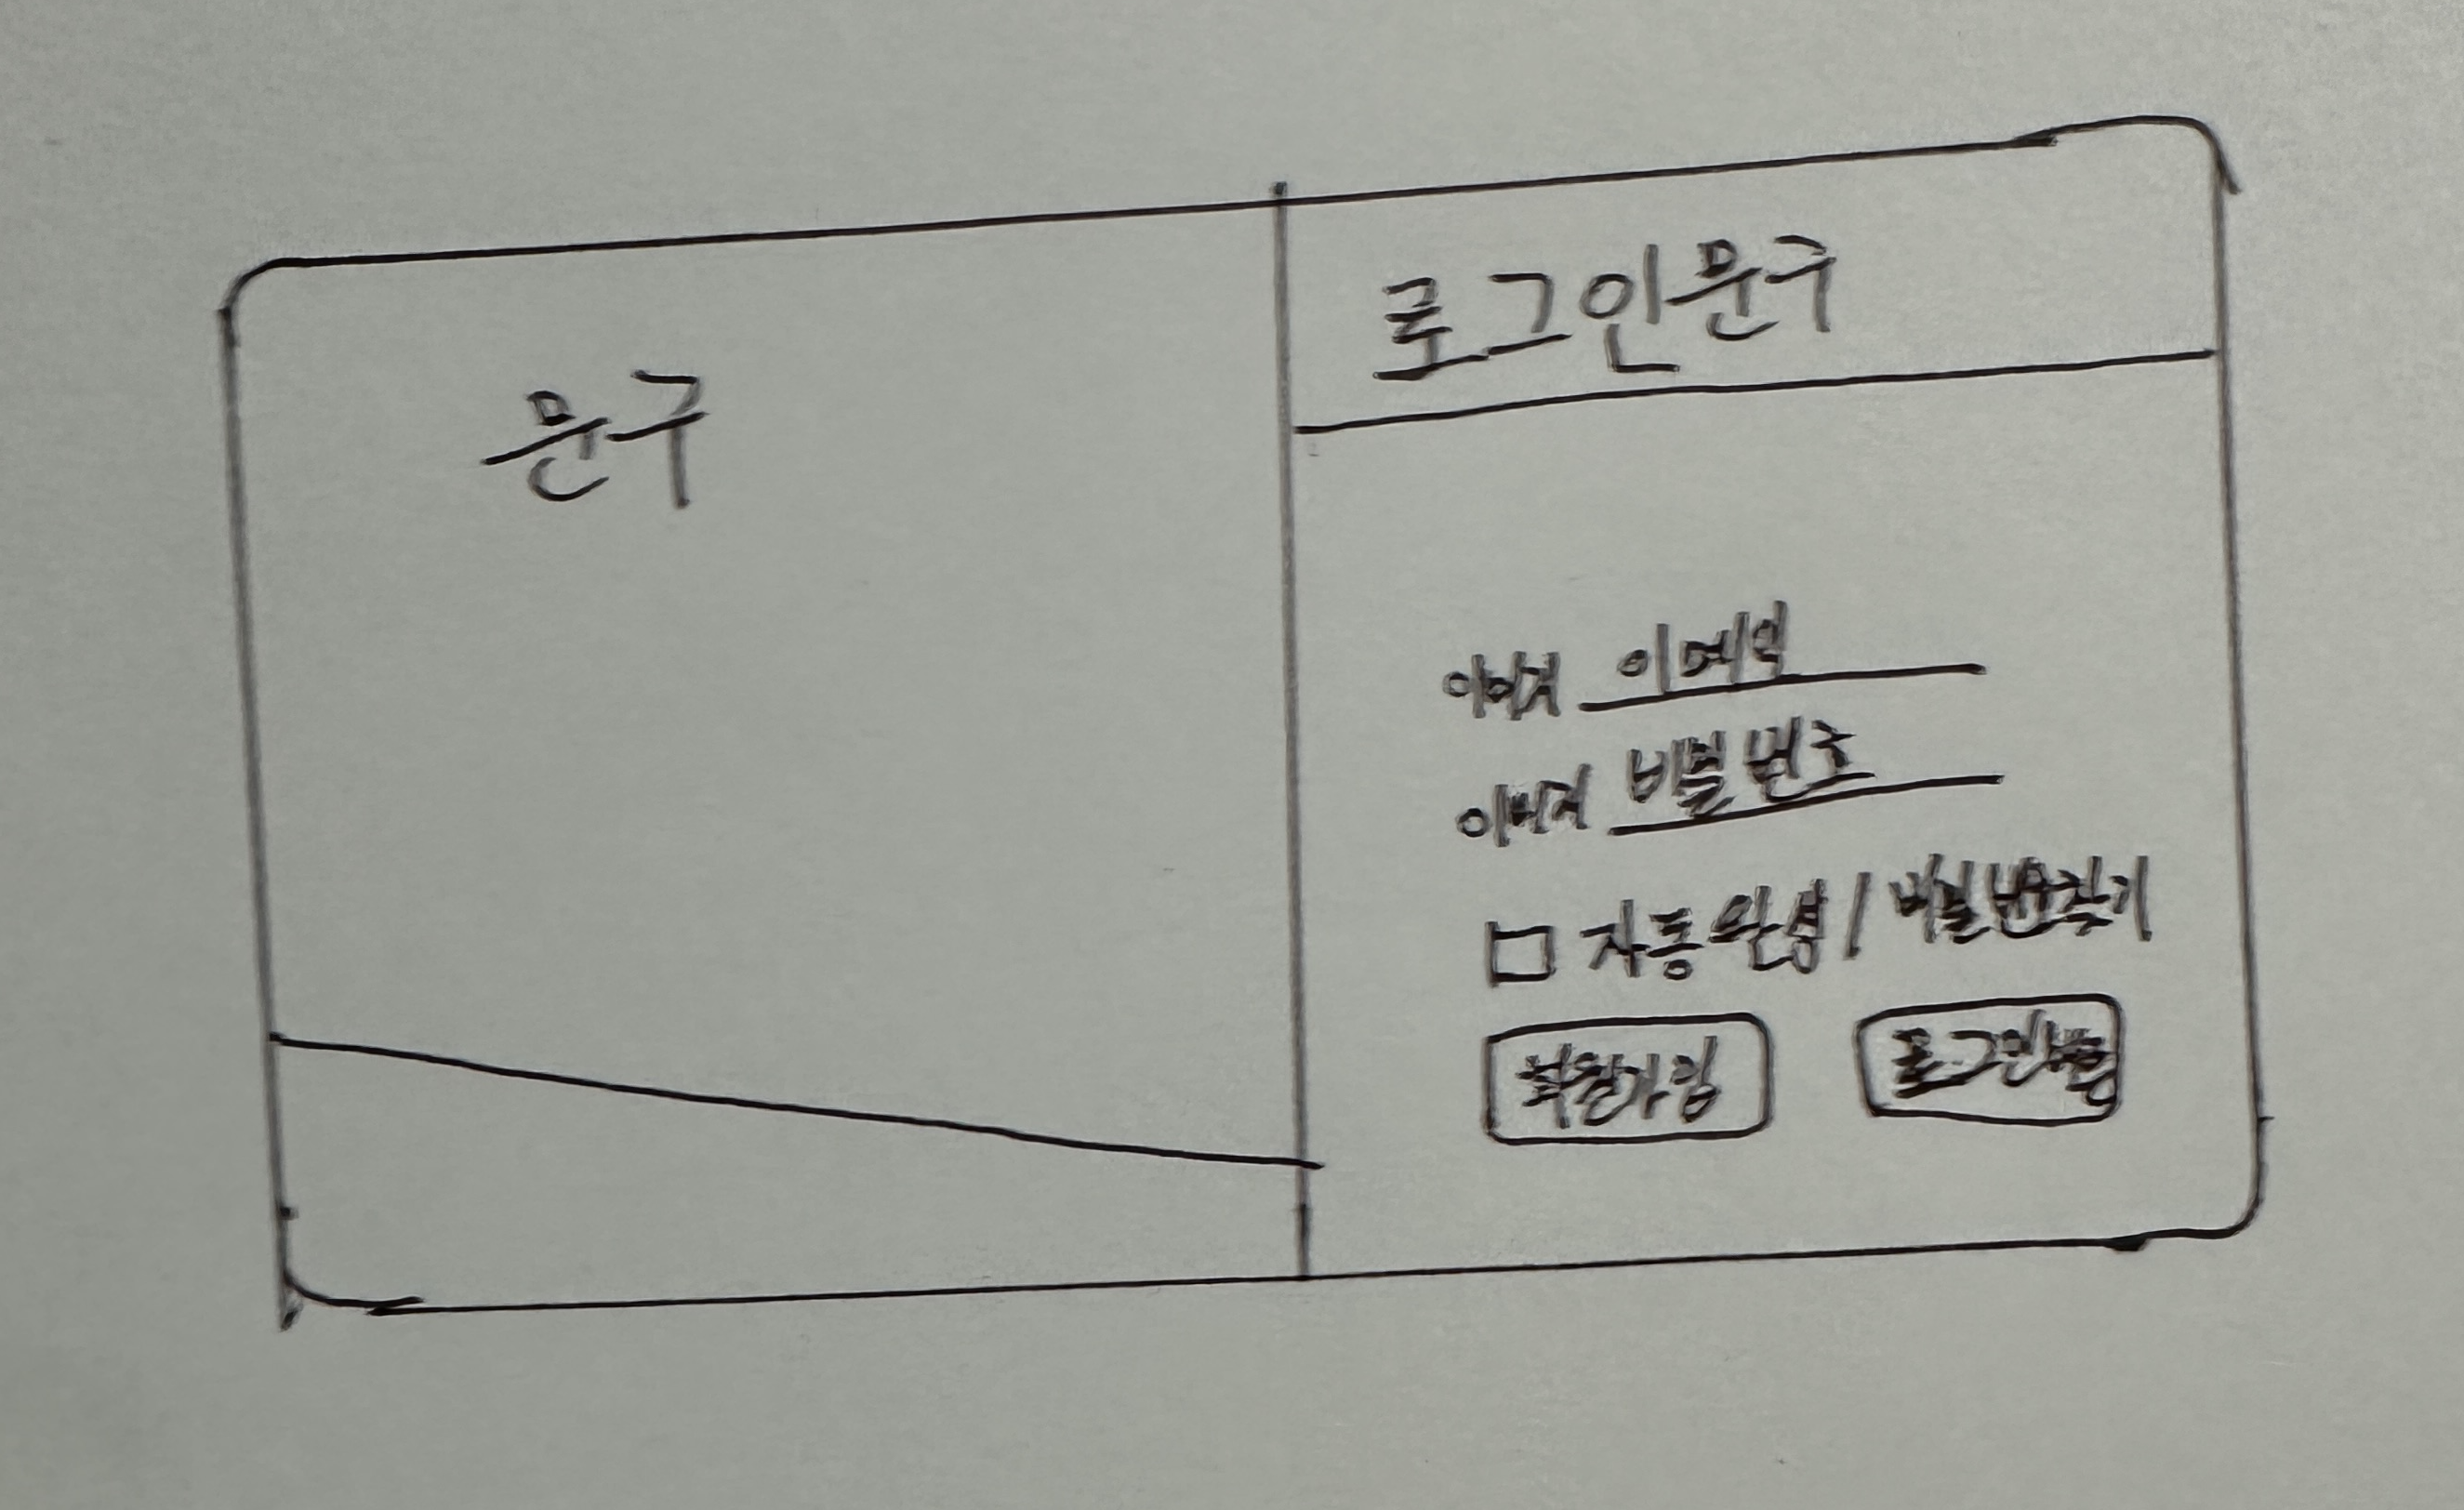 문구
로그인문구
이미지 이메일
이미지 비밀번호
자동완성 / 비밀번호찾기
회원가입
로그인버튼